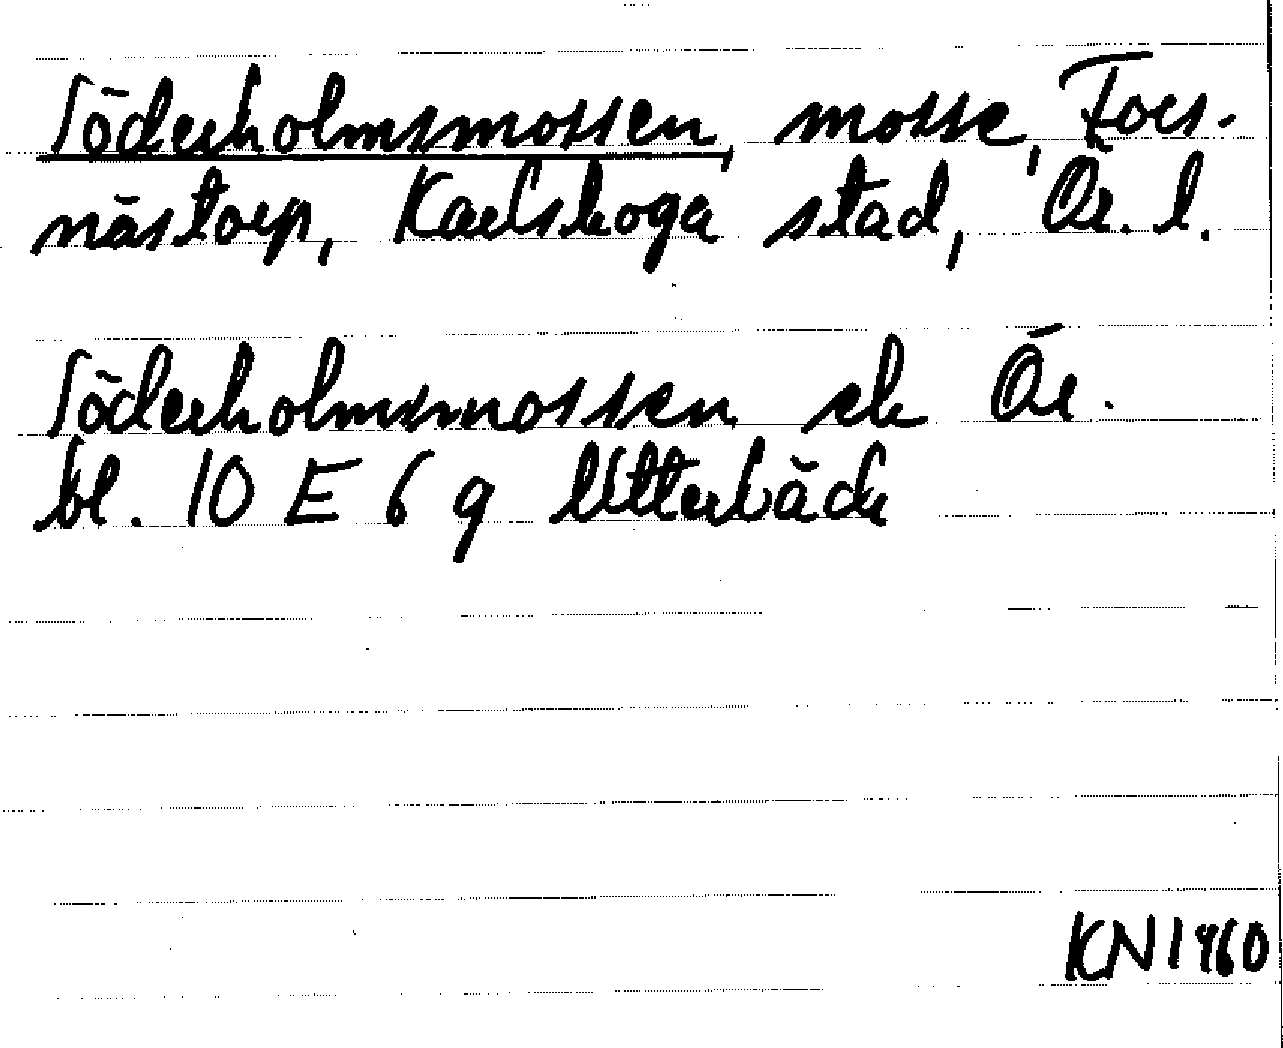 Söderholmsmossen, mosse, Fors-
nästorp, Karlskoga stad, Ör. l.
Söderholmsmossen ek Ör.
bl. 10 E 6 g Utterbäck
KN 1960